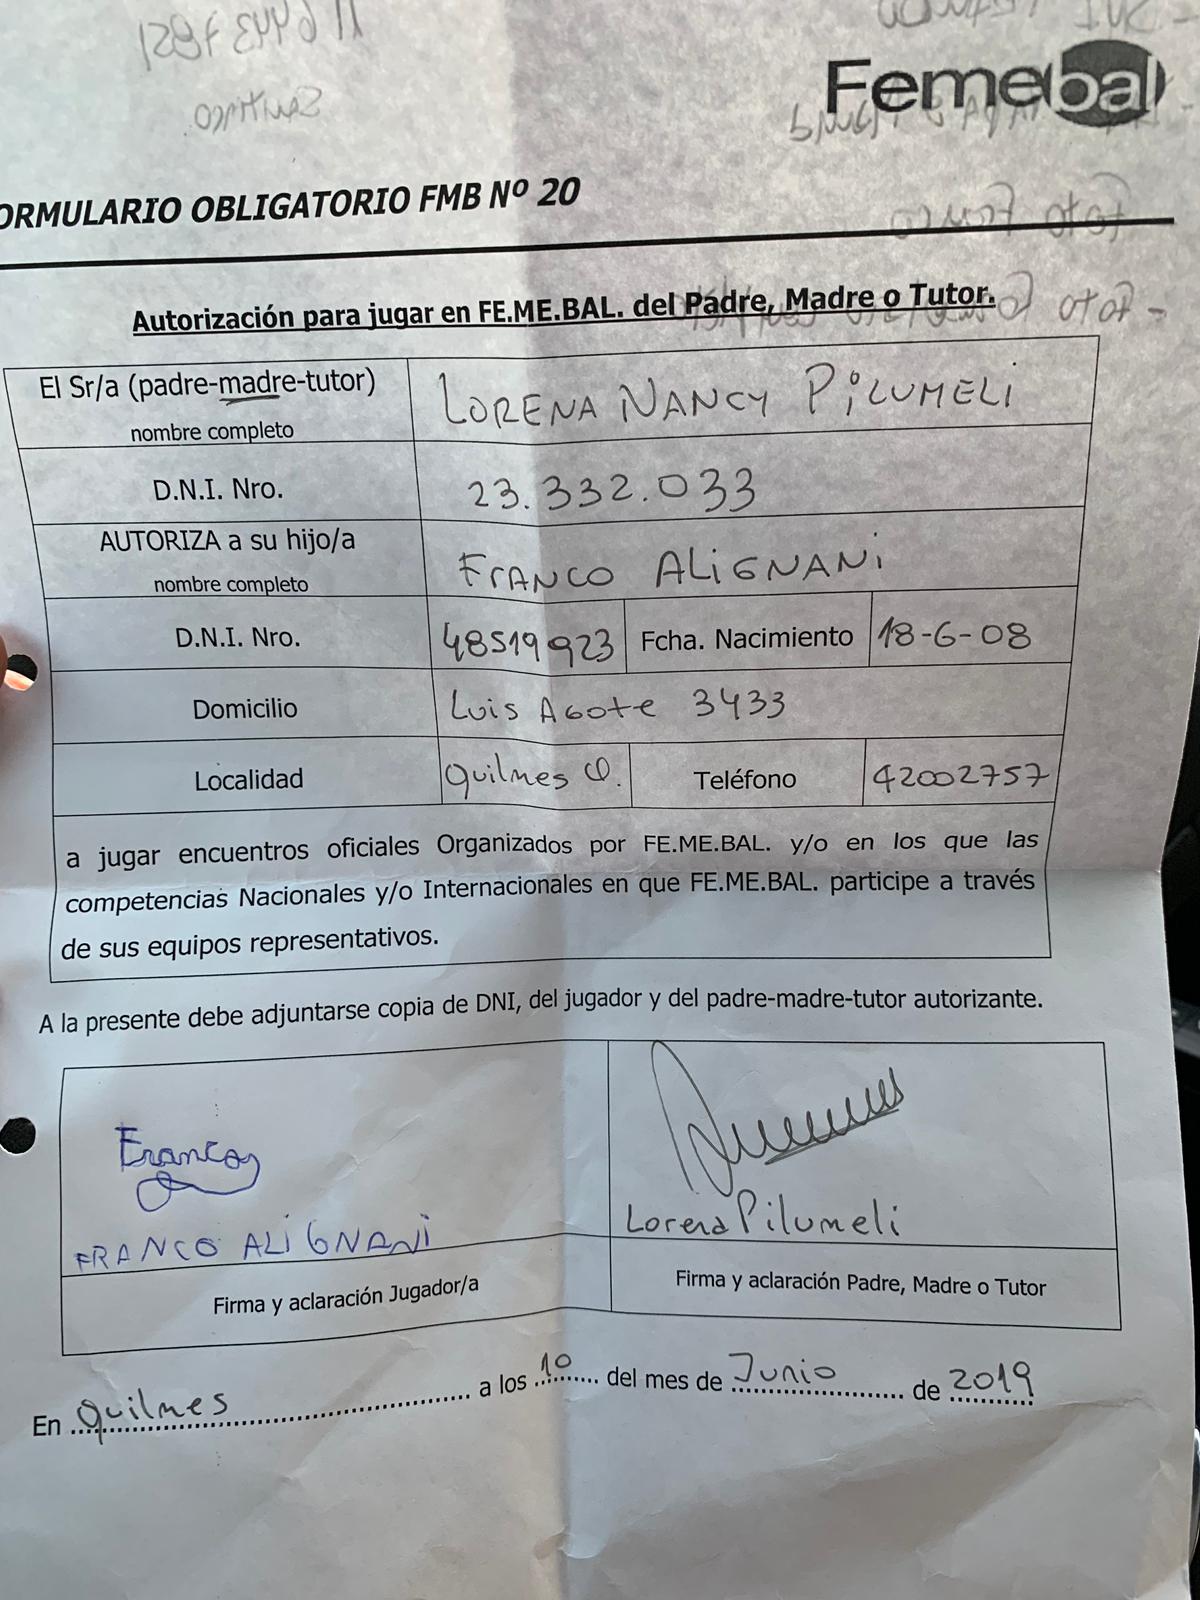 Femebal
ORMULARIO OBLIGATORIO FMB Nº 20
Autorización para jugar en FE.ME.BAL. del Padre, Madre o Tutor.
El Sr/a (padre-madre-tutor) LORENA NANCY PILUMELI
nombre completo
D.N.I. Nro. 23.332.033
AUTORIZA a su hijo/a FRANCO ALIGNANI
nombre completo
D.N.I. Nro. 48519923 Fcha. Nacimiento 18-6-08
Domicilio Luis Agote 3433
Localidad Quilmes O. Teléfono 42002757
a jugar encuentros oficiales Organizados por FE.ME.BAL. y/o en los que las
competencias Nacionales y/o Internacionales en que FE.ME.BAL. participe a través
de sus equipos representativos.
A la presente debe adjuntarse copia de DNI, del jugador y del padre-madre-tutor autorizante.
Franco
FRANCO ALIGNANI Lorena Pilumeli
Firma y aclaración Jugador/a Firma y aclaración Padre, Madre o Tutor
En Quilmes a los 10 del mes de Junio de 2019